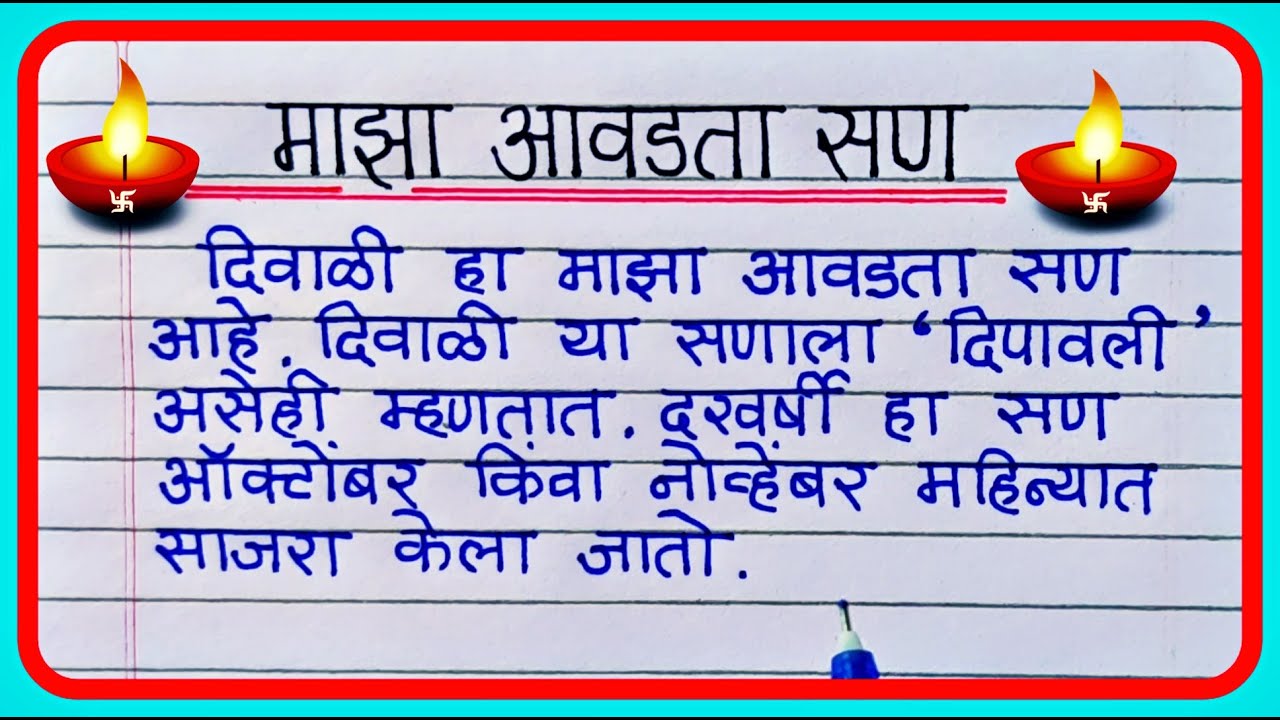 माझा आवडता सण
दिवाळी हा माझा आवडता सण
आहे. दिवाळी या सणाला ‘दिपावली’
असेही म्हणतात. दरवर्षी हा सण
ऑक्टोंबर किंवा नोव्हेंबर महिन्यात
साजरा केला जातो.